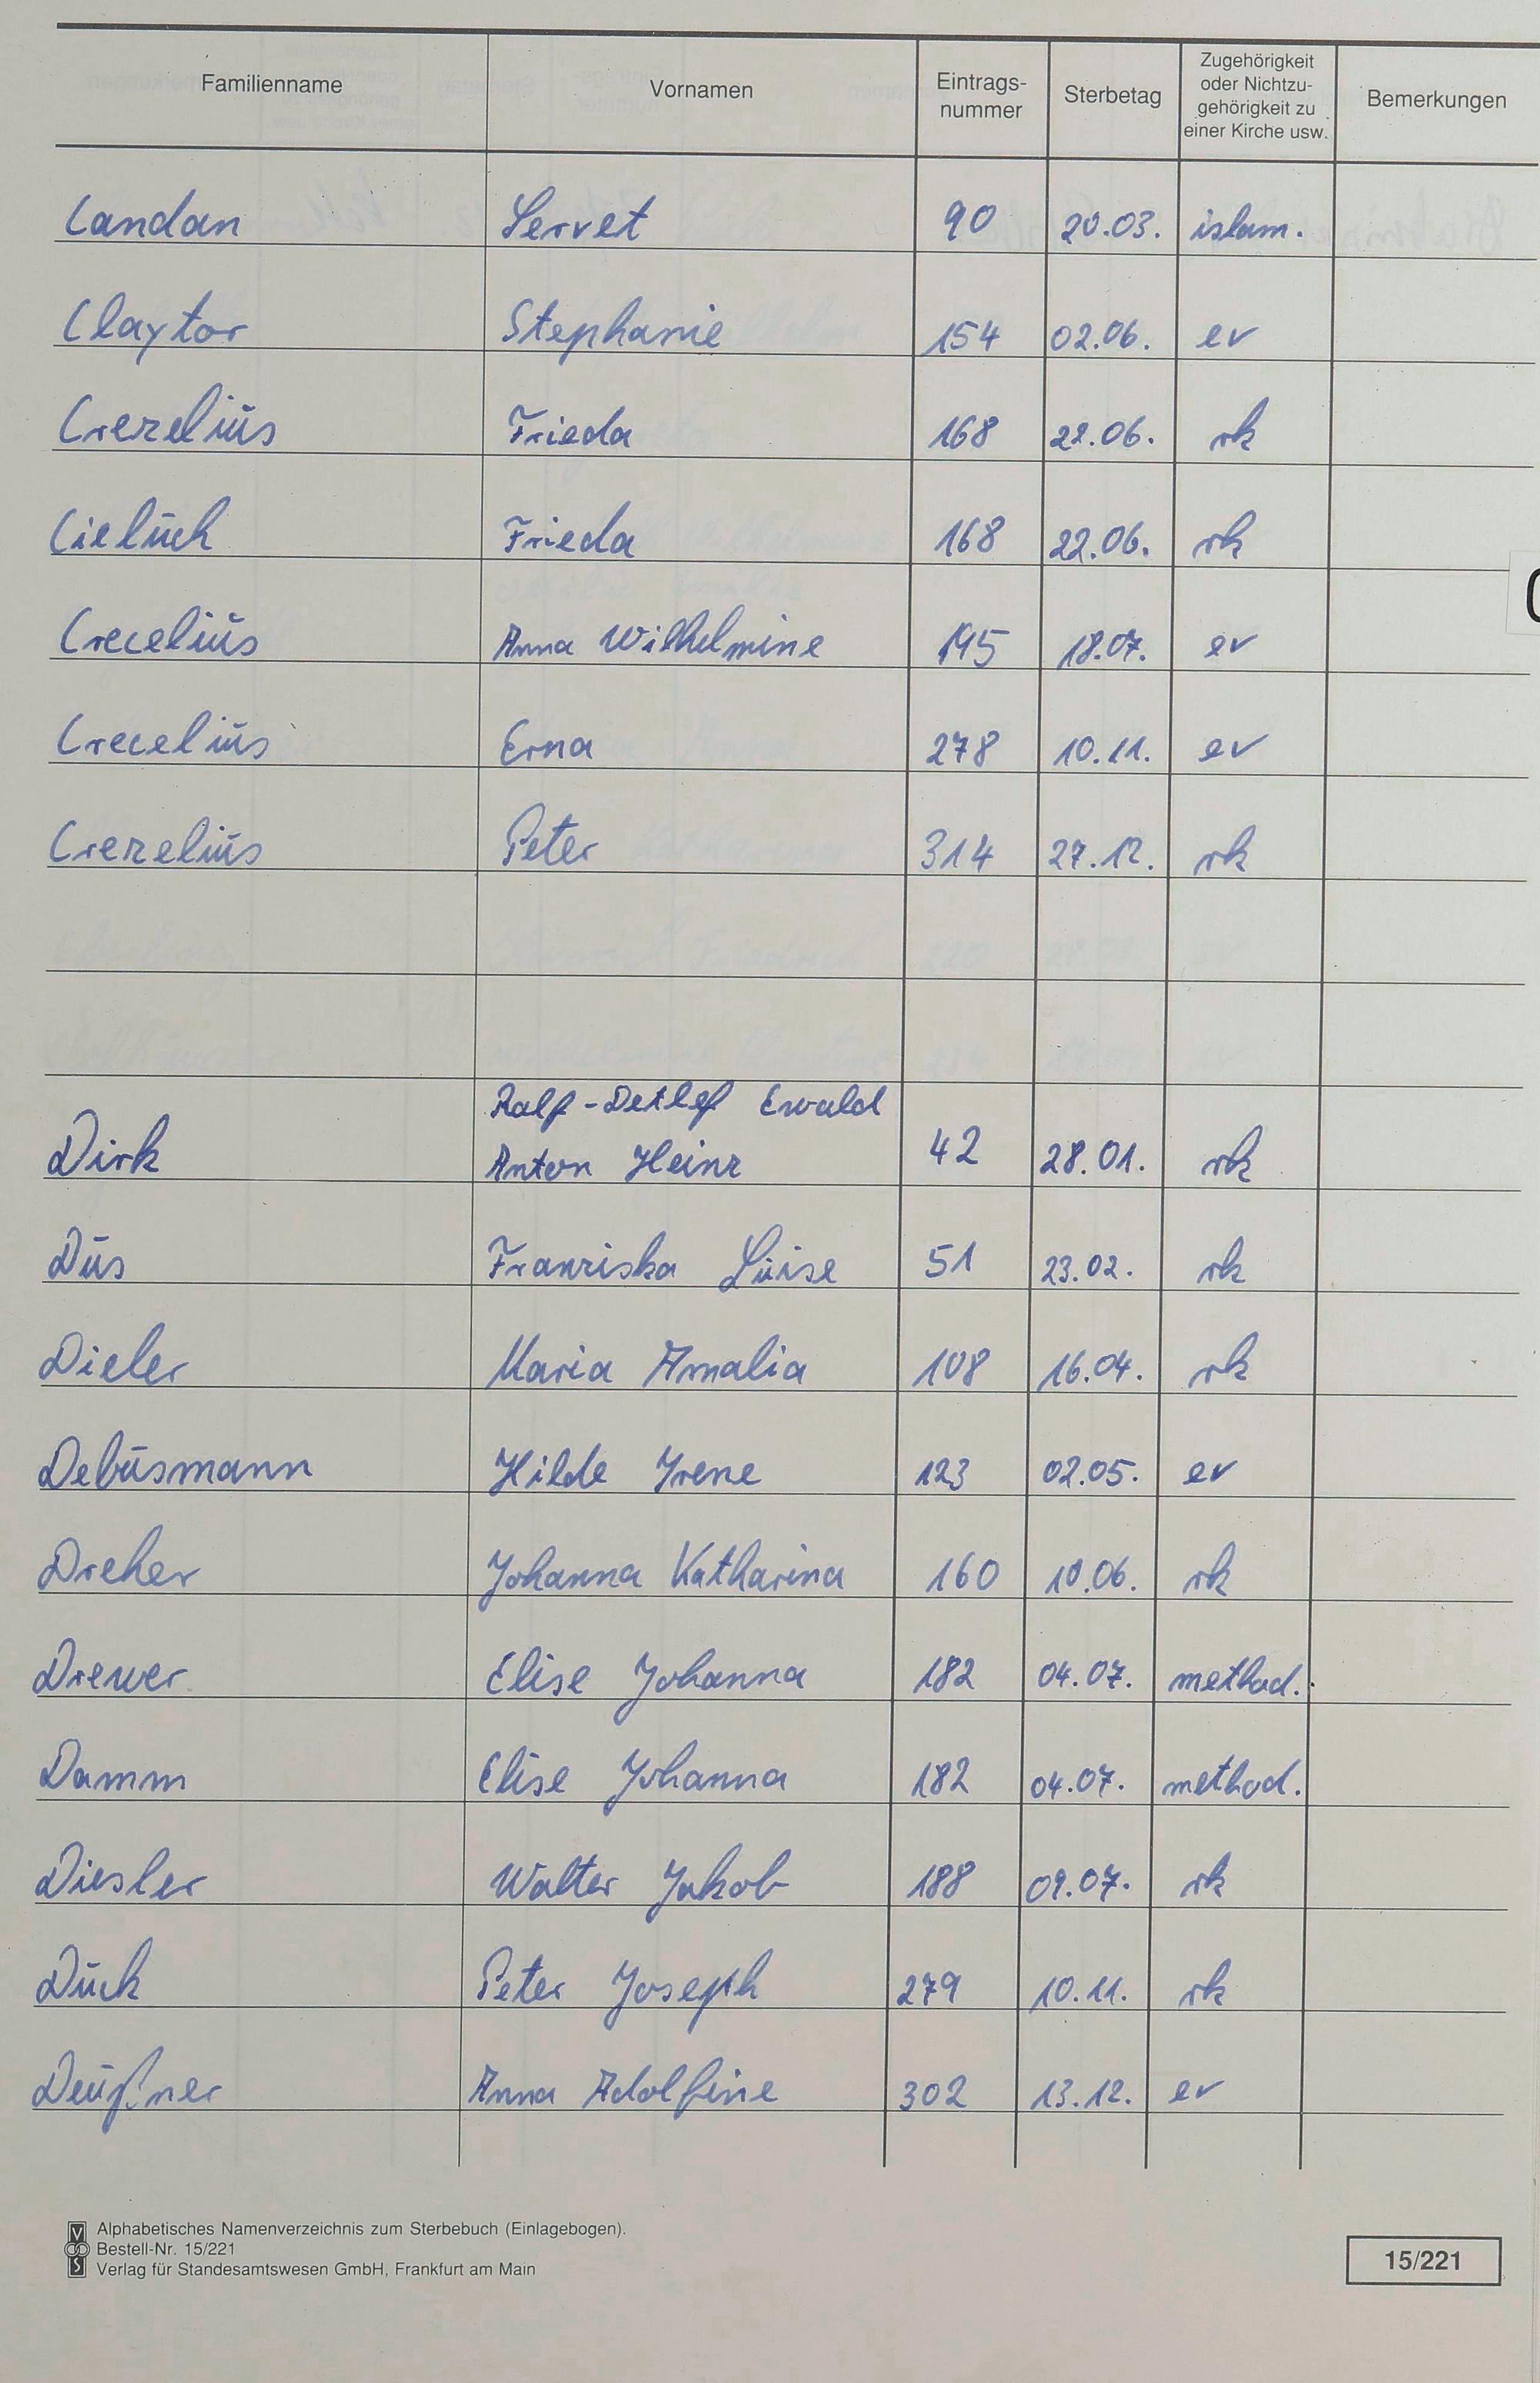 Familienname Vornamen Eintrags-nummer Sterbetag Zugehörigkeit oder Nichtzu-gehörigkeit zu einer Kirche usw. Bemerkungen
Candan Servet 90 20.03. islam.
Claytor Stephanie 154 02.06. ev
Crezelius Frieda 168 22.06. rk
Cieluch Frieda 168 22.06. rk
Crecelius Anna Wilhelmine 195 18.07. ev
Crecelius Erna 278 10.11. ev
Crezelius Peter 314 27.12. rk
Ralf-Detlef Ewald
Dirk Anton Heinz 42 28.01. rk
Dus Franziska Luise 51 23.02. rk
Dieler Maria Amalia 108 16.04. rk
Debusmann Hilde Irene 123 02.05. ev
Dreher Johanna Katharina 160 10.06. rk
Drewer Elise Johanna 182 04.07. method.
Damm Elise Johanna 182 04.07. method.
Diesler Walter Jakob 188 09.07. rk
Duck Peter Joseph 279 10.11. rk
Deußner Anna Adolfine 302 13.12. ev
Alphabetisches Namenverzeichnis zum Sterbebuch (Einlagebogen).
Bestell-Nr. 15/221
Verlag für Standesamtswesen GmbH, Frankfurt am Main
15/221